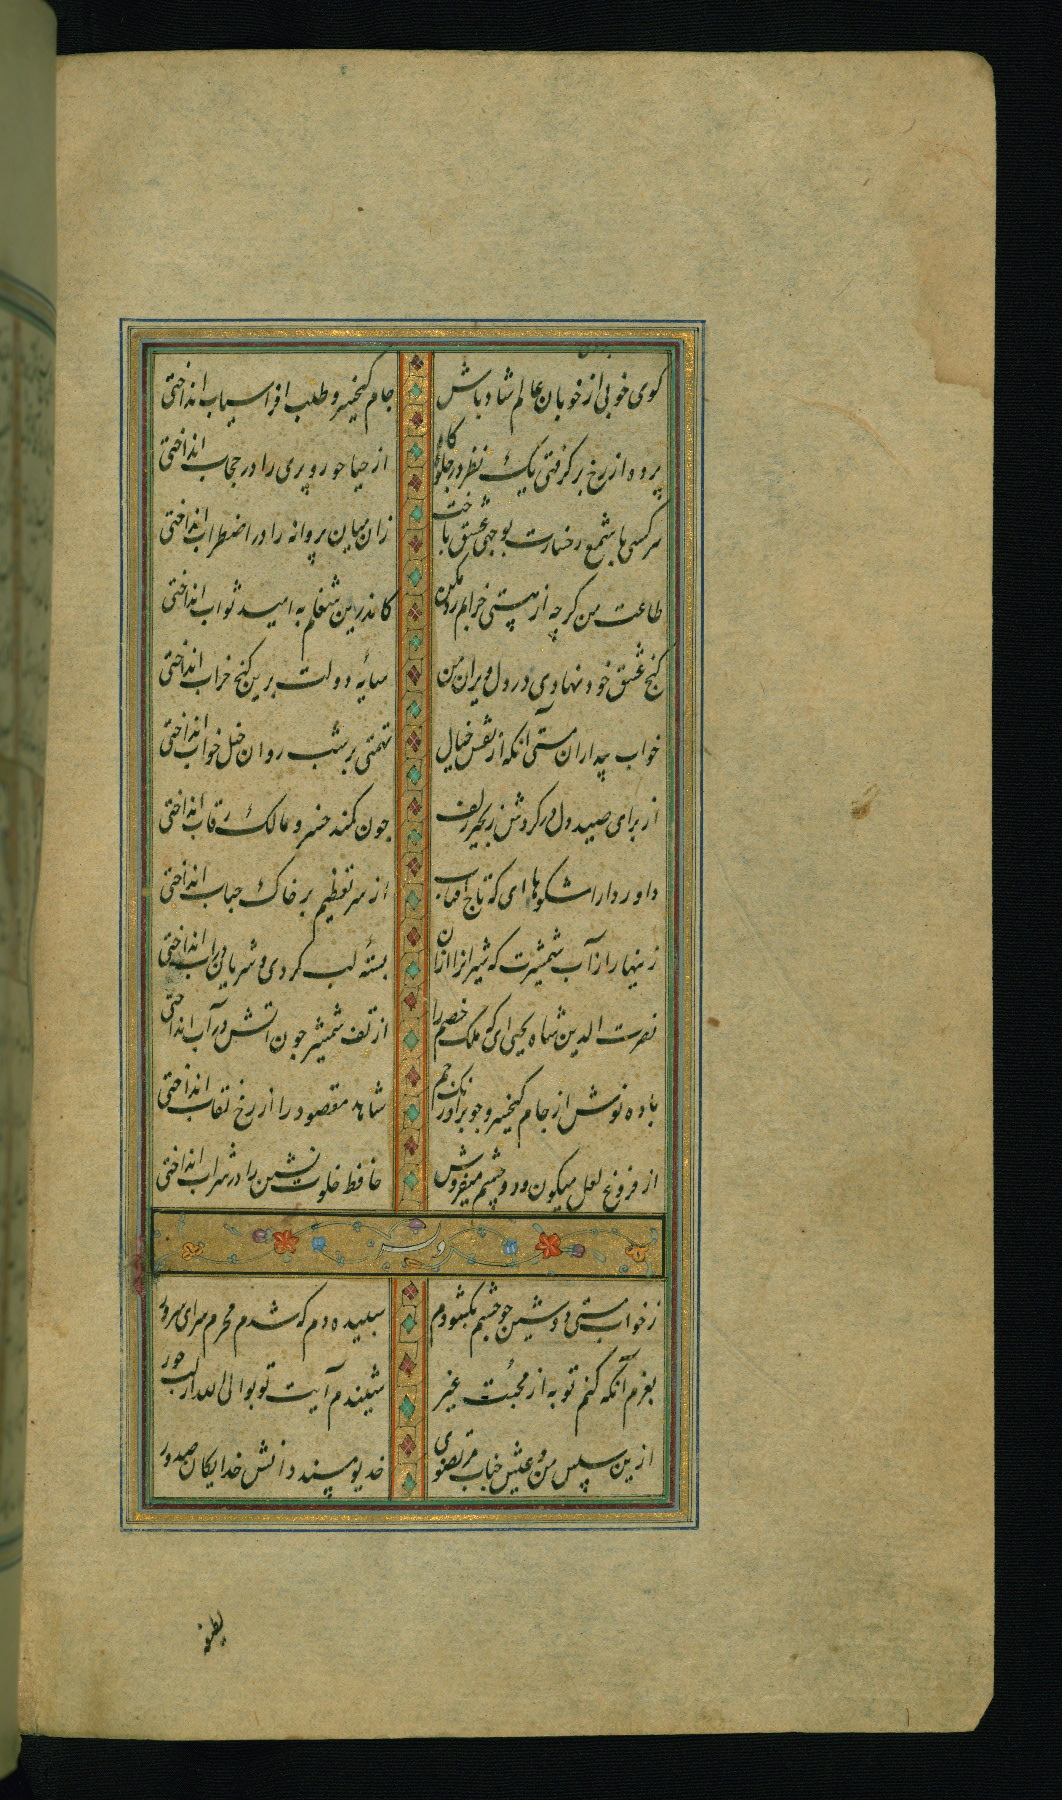 کوی خوبی از خوبان عالم شاد باش جام کیخسرو طلب افراسیاب انداختی
پرده از رخ برگرفتی یک نظر در جلوه‌گاه از حیا حور و پری را در حجاب انداختی
هر کسی با شمع رخسارت بوجهی عشق باخت زان میان پروانه را در اضطراب انداختی
طاعت من کرچه از مستی خرابم رد مکن کاندرین شغلم به امید ثواب انداختی
کنج عشق خود نهادی در دل ویران من سایهٔ دولت برین کنج خراب انداختی
خواب بیداران ببستی آنکه از نقش خیال تهمتی بر شب روان خیل خواب انداختی
از برای صید دل در کردنش زنجیر زلف چون کمند خسرو مالک رقاب انداختی
داور دارا شکوها ای که تاج افتاب از سر تعظیم بر خاک جناب انداختی
زینهار از آب شمشیرت که شیرانرا ازان تشنه لب کردی و شریان در آب انداختی
نصرت الدین شاه یحیی ای که ملک خصم را از تف شمشیر چون اتش در آب انداختی
باده نوش از جام کیخسرو چو بر اورنک جم شاهد مقصود را از رخ نقاب انداختی
از فروغ لعل میکون و دو چشم میفروش حافظ خلوت نشین را در شراب انداختی
وله
ز خواب مستی دوشین چو چشم بکشودم سپیده دم که شدم محرم سرای سرور
بعزم آنکه کنم توبه از محبت غیر شنیدم آیت توبوا الی الله از لب حور
ازین سپس من و عیش جناب مرتضوی خدیو مسند دانش خدایکان صدور
لطیفه